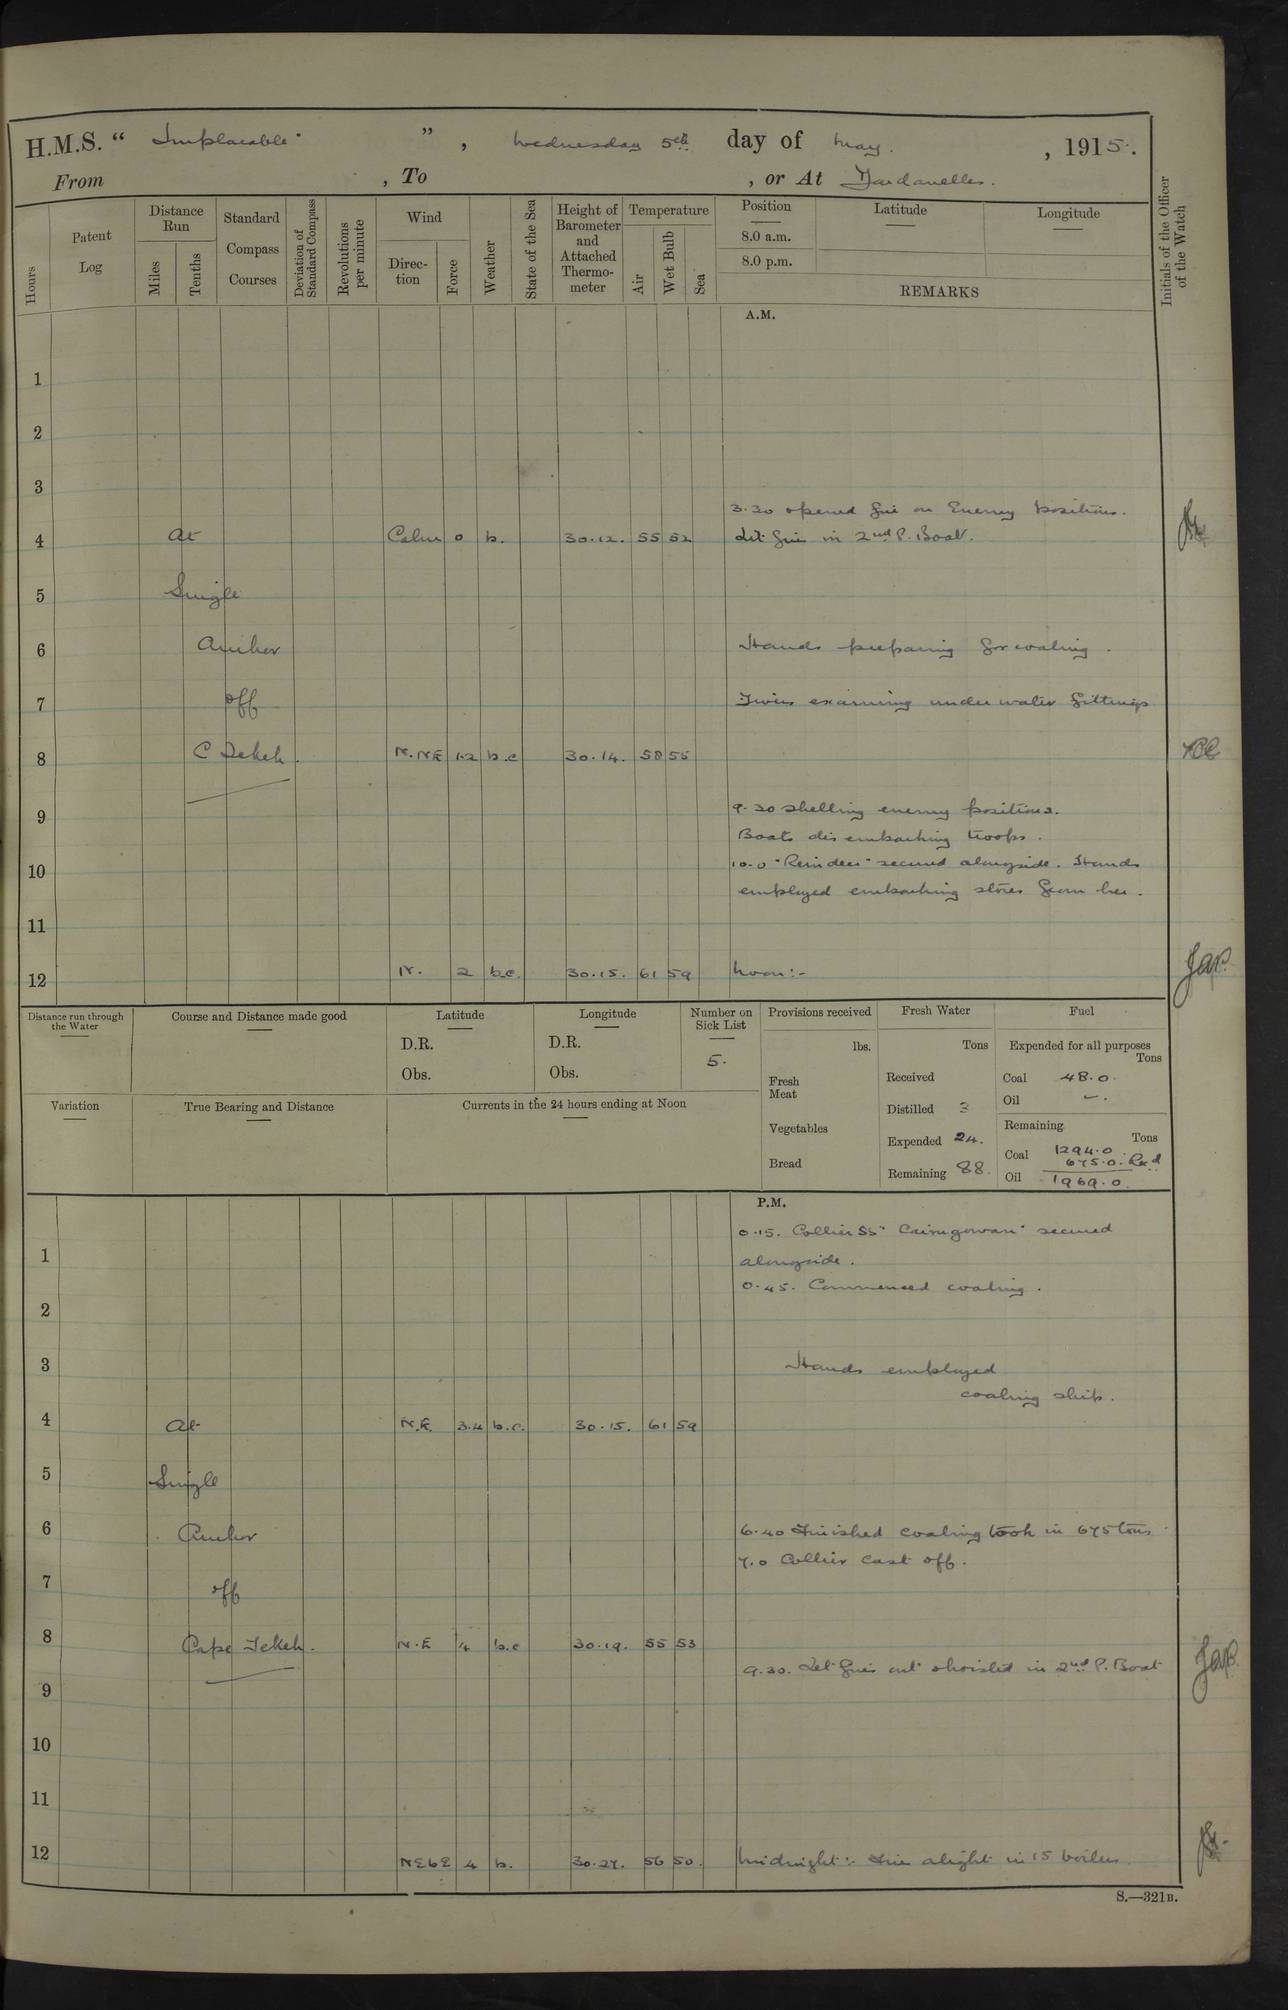 H.M.S. “ Implacable ” , Wednesday 5th day of May. , 1915.
From , To , or At Dardanelles.
Hours
Patent Log
Distance Run
Miles
Tenths
Standard Compass Courses
Deviation of Standard Compass
Revolutions per minute
Wind
Direction
Force
Weather
State of the Sea
Height of Barometer and Attached Thermometer
Temperature
Air
Wet Bulb
Sea
Position
8.0 a.m.
8.0 p.m.
Latitude
Longitude
REMARKS
Initials of the Officer of the Watch
A.M.
1
2
3
3.30 opened fire on Enemy positions.
4 At Calm 0 b. 30.12. 55 52 Lit fire in 2nd P. Boat.
5 Single
6 Anchor Hands preparing for coaling.
7 off Divers examining under water fittings
8 C Tekeh. N.NE 1.2 b.c 30.14. 58 55
9 9.30 shelling enemy positions.
Boats disembarking troops.
10 10.0 "Reindeer" secured alongside. Hands
employed embarking stores from her.
11
12 N. 2 b.c. 30.15. 61 59 Noon:-
Distance run through the Water
Course and Distance made good
Latitude
D.R.
Obs.
Longitude
D.R.
Obs.
Number on Sick List
5.
Provisions received
lbs.
Fresh Meat
Vegetables
Bread
Fresh Water
Tons
Received
Distilled 3
Expended 24.
Remaining 88.
Fuel
Expended for all purposes
Tons
Coal 48.0.
Oil -.
Remaining
Tons
Coal 1294.0
675.0. Recd
Oil 1969.0
Variation
True Bearing and Distance
Currents in the 24 hours ending at Noon
P.M.
0.15. Collier SS "Cairngowan" secured
1 alongside.
0.45. Commenced coaling.
2
3 Hands employed
coaling ship.
4 At N.E. 3.4 b.c. 30.15. 61 59
5 Single
6 Anchor 6.40 Finished coaling took in 675 tons
7.0 Collier cast off.
7 off
8 Cape Tekeh. N.E 4 b.c 30.19. 55 53
9.30. Let fires out & hoisted in 2nd P. Boat
9
10
11
12 NEbE 4 b. 30.27. 56 50. Midnight:- Fires alight in 15 boilers
S.—321B.